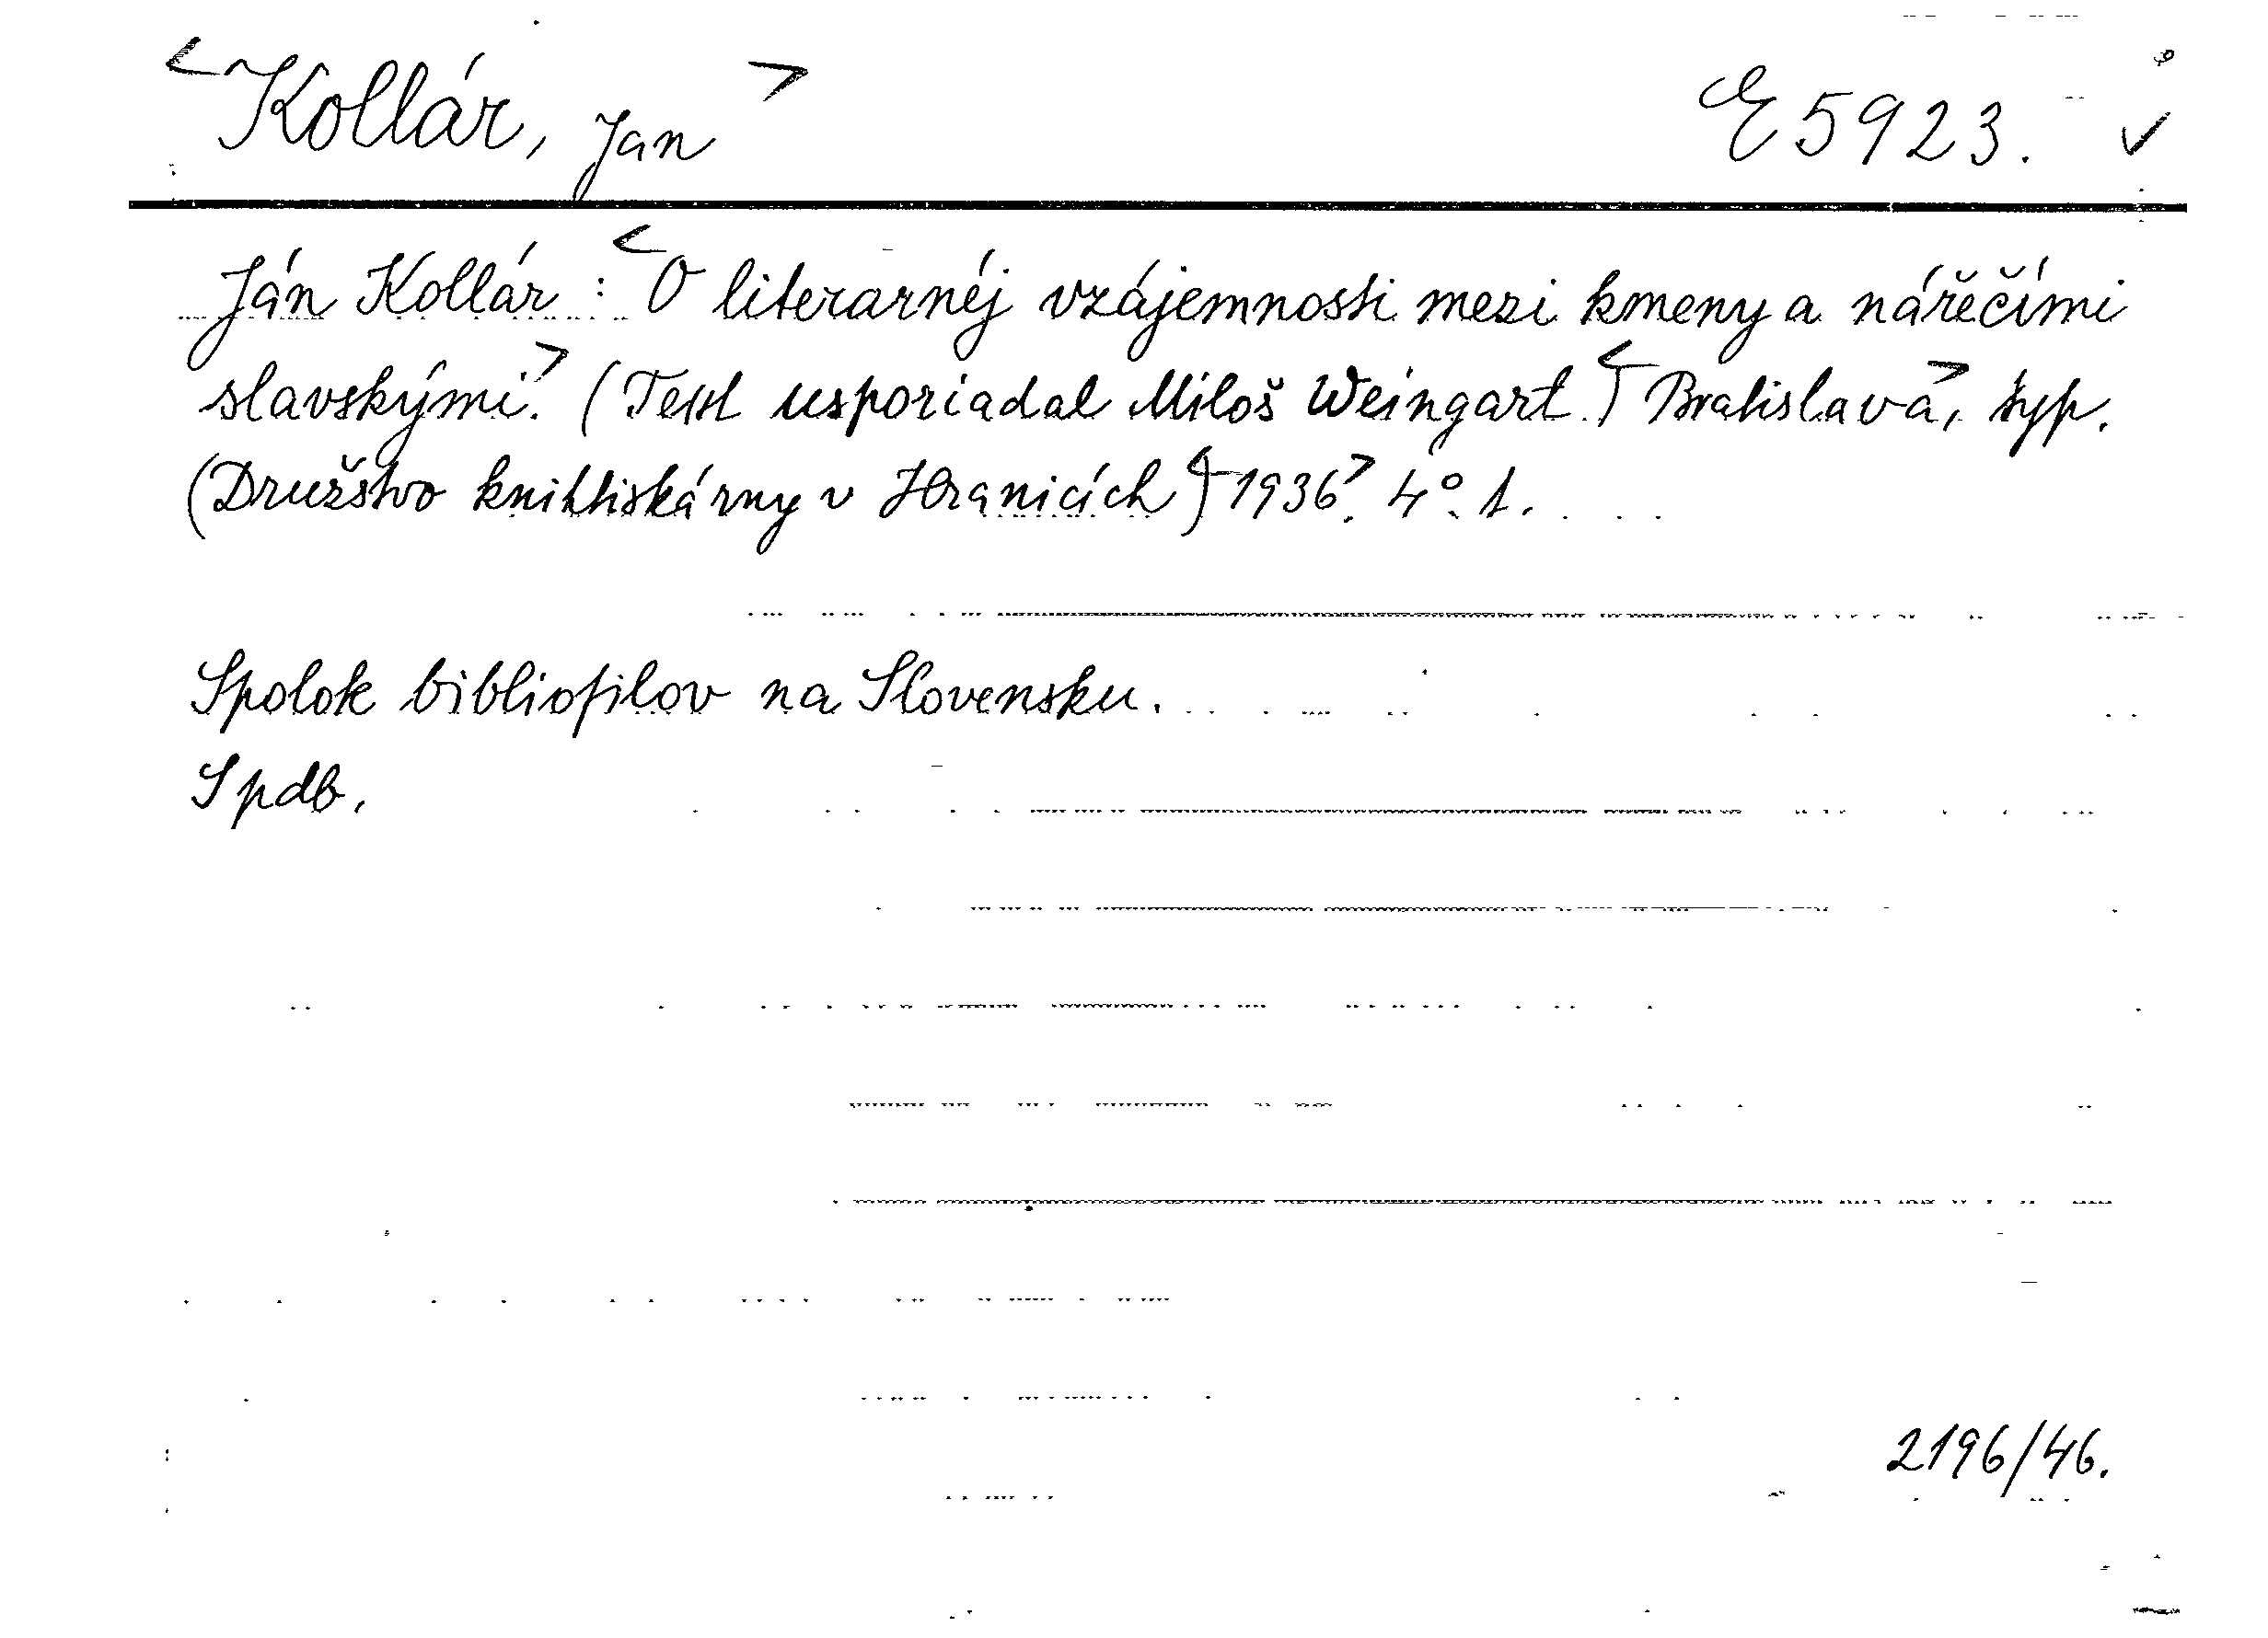 <Kollár, Jan> E 5923. ✓
Ján Kollár: <O literarnéj vzájemnosti mezi kmeny a nářečími
slavskými.> (Text usporiadal Miloš Weingart.) <Bratislava>, typ.
(Družstvo knihtiskárny v Hranicích) <1936>. 4°. 1.
Spolok bibliofilov na Slovensku.
Spdb.
2196/46.